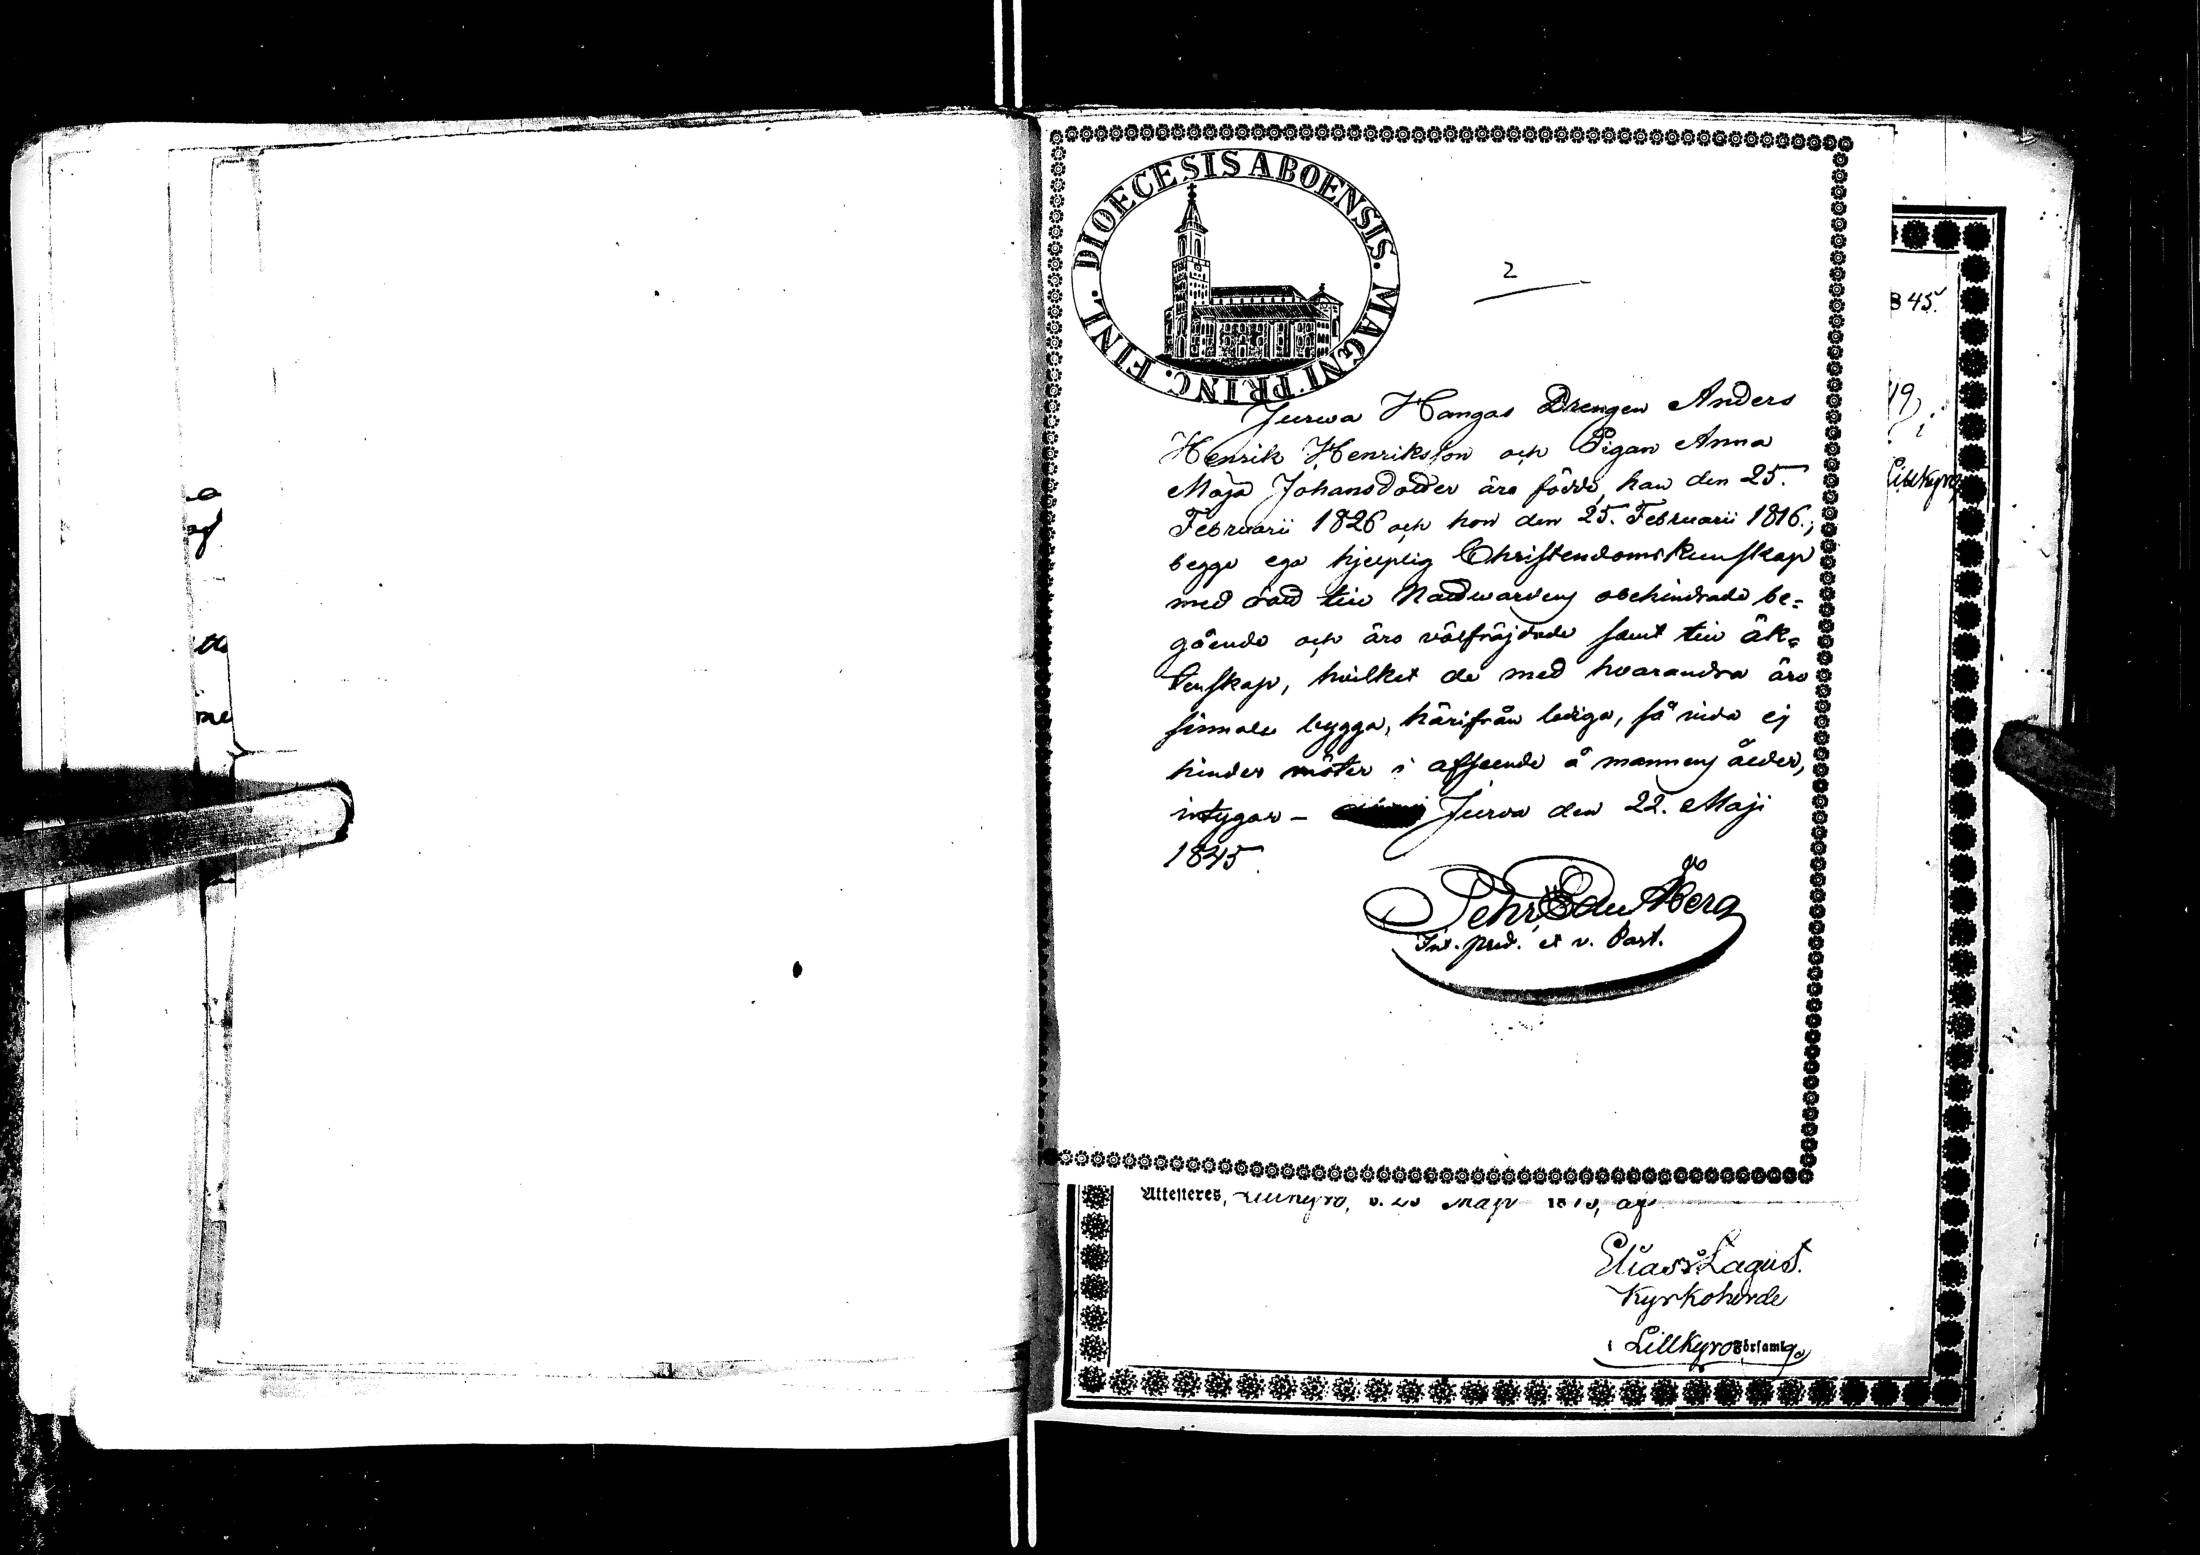 DIOECESIS ABOENSIS. MAGNI PRINC. FINL.
2
Jurwa Hangas Drengen Anders
Henrik Henriksson och Pigan Anna
Maja Johansdotter äro födde, han den 25.
Februarii 1826 och hon den 25. Februarii 1816.;
begge ega hjelplig Christendomskunskap
med rätt till Nattvardens obehindrade be=
gående och äro välfräjdade samt till äk=
tenskap, hvilket de med hvarandra äro
sinnade bygga, härifrån lediga, så vida ej
hinder möter i afseende å mannens ålder,
intygar – Jurva den 22. Maji
1845.
Pehr Edv. Åberg
Int. pred. et v. Past.
845.
19
Lillkyro
Attesteres, Lillkyro, d. Maji 18 , af
Elias Lagus.
Kyrkoherde
i Lillkyro Församlg.